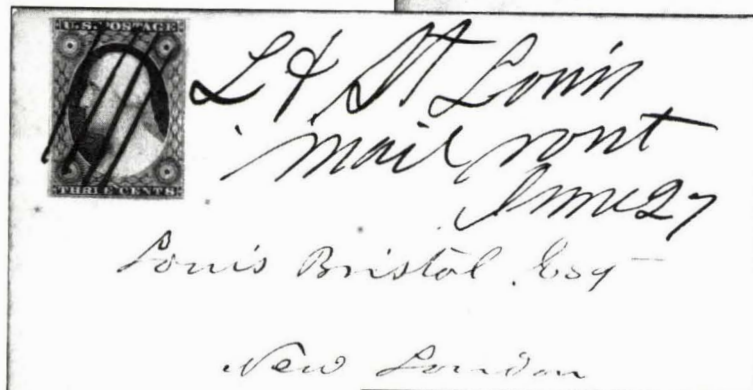 U.S. POSTAGE
THREE CENTS
L & St Louis
mail rout
June 27
Louis Bristol Esq
New London